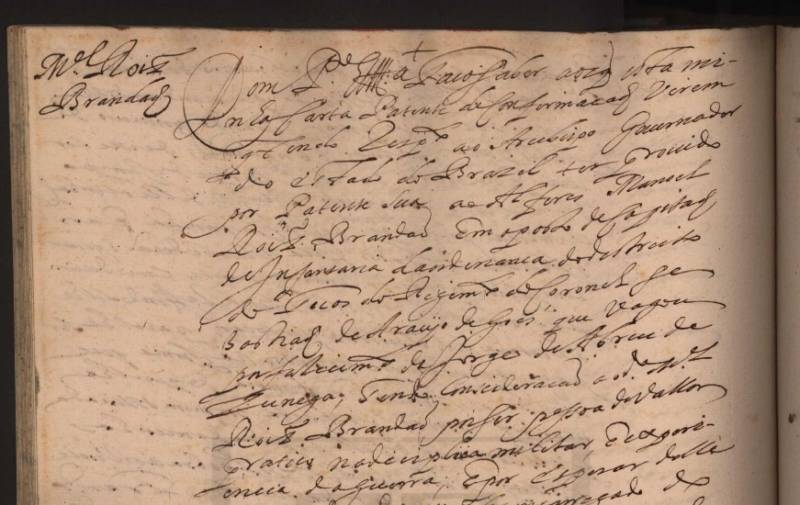 M.el Roiz
Brandaõ
Dom P.e &a Faço saber aos q esta mi-
nha Carta Patente de Confirmacaõ Virem
q tendo Resp.to ao Arcebispo Guvernador
do estado do Brazil ter provido
por Patente sua ao Alferes Manoel
Roiz Brandaõ Em o posto de Capitaõ
de Infantaria da ordenanca do destrito
do Regim.to do Coronel Se
bastiaõ de Araujo de Goes que vagou
por falecim.to de Jorge de Abreu de
tendo Consideracaõ ao d.o M.el
Roiz Brandaõ por ser pessoa de Vallor
pratico na deciplina militar E experi-
encia da guerra, E por esperar delle
encarregado do